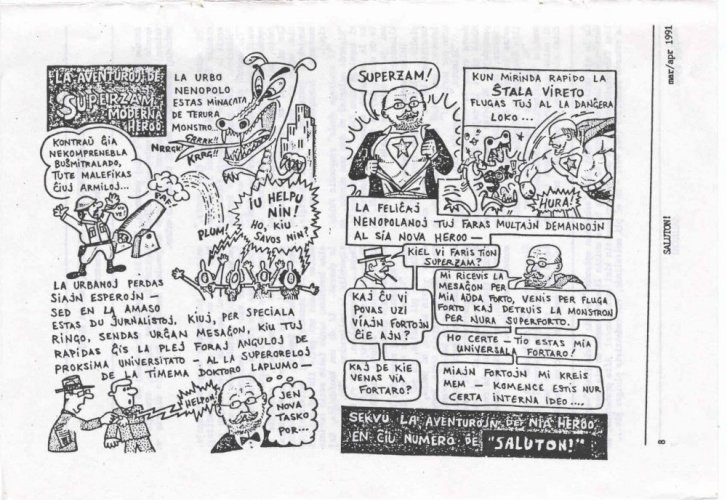 LA AVENTUROJ DE
SUPERZAM,
MODERNA
HEROO
LA URBO
NENOPOLO
ESTAS MINACATA
DE TERURA
MONSTRO.
GRRRK!!
NRRGK!
KRRG!!
KONTRAŬ ĜIA
NEKOMPRENEBLA
BUŜMITRALADO,
TUTE MALEFIKAS
ĈIUJ ARMILOJ...
PAF!
PAN
PLUM!
IU HELPU
NIN!
HO, KIU
SAVOS NIN?
LA URBANOJ PERDAS
SIAJN ESPEROJN —
SED EN LA AMASO
ESTAS DU ĴURNALISTOJ, KIUJ, PER SPECIALA
RINGO, SENDAS URĜAN MESAĜON, KIU TUJ
RAPIDAS ĜIS LA PLEJ FORAJ ANGULOJ DE
PROKSIMA UNIVERSITATO — AL LA SUPERORELOJ
DE LA TIMEMA DOKTORO LAPLUMO —
HELPON!
JEN
NOVA
TASKO
POR...
SUPERZAM!
KUN MIRINDA RAPIDO LA
ŜTALA VIRETO
FLUGAS TUJ AL LA DANĜERA
LOKO ...
HURA!
LA FELIĈAJ
NENOPOLANOJ TUJ FARAS MULTAJN DEMANDOJN
AL SIA NOVA HEROO —
KIEL VI FARIS TION
SUPERZAM?
MI RICEVIS LA
MESAĜON PER
MIA AŬDA FORTO, VENIS PER FLUGA
FORTO KAJ DETRUIS LA MONSTRON
PER NURA SUPERFORTO.
KAJ ĈU VI
POVAS UZI
VIAJN FORTOJN
ĈIE AJN?
HO CERTE — TIO ESTAS MIA
UNIVERSALA FORTARO!
KAJ DE KIE
VENAS VIA
FORTARO?
MIAJN FORTOJN MI KREIS
MEM — KOMENCE ESTIS NUR
CERTA INTERNA IDEO....
SEKVU LA AVENTUROJN DE NIA HEROO
EN ĈIU NUMERO DE "SALUTON!"
mar/apr 1991
SALUTON!
8